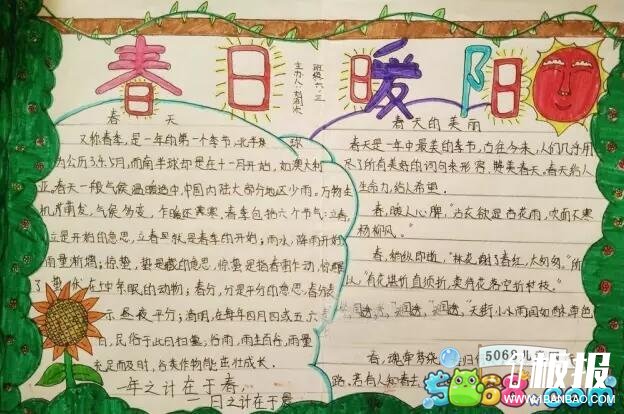 春日暖阳
班级六、三
主办人：
春 天
又称春季，是一年的第一个季节，北半球
为公历3、4、5月，而南半球却是在十一月开始，如澳大利
亚。春天一般气候温暖适中，中国内陆大部分地区少雨。万物生
机萌发，气候多变，乍暖还寒。春季包括六个节气：立春，
立是开始的意思，立春是就是春季的开始；雨水，降雨开始
雨量渐增；惊蛰，蛰是藏的意思，惊蛰是指春雷乍动，惊醒
了蛰伏在中冬眠的动物；春分，分是平分的意思，春分表
示昼夜平分；清明，在每年四月四或五、六
日，民俗于此日扫墓；谷雨，雨生百谷，雨量
充足而及时，谷类作物能茁壮成长。
一年之计在于春
一日之计在于晨
春天的美丽
春天是一年中最美的季节，古往今来，人们几乎用
尽了所有美好的词句来形容，赞美春天。春天给人
生命力，给人希望。
春，暖人心脾，“沾衣欲湿杏花雨，吹面不寒
杨柳风。”
春，稍纵即逝，“林花谢了春红，太匆匆。”所
以“有花堪折直须折，莫待花落空折枝。”
润透，“润透，“天街小雨润如酥，草色
春，魂牵梦绕
路，若有人知春去
5068儿
1板报
WWW.1BANBAO.COM